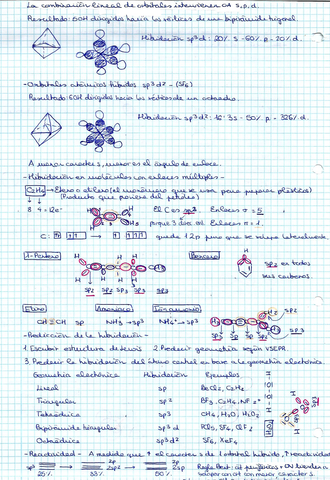 La combinación lineal de orbitales intervienen OA s, p, d.
Resultado: 5OH dirigidos hacia los vértices de una bipirámide trigonal
Hibridación sp³d: 20% s - 60% p - 20% d.
- Orbitales atómicos híbridos sp³d² - (SF6)
Resultado: 6OH dirigidos hacia los vértices de un octaedro.
Hibridación sp³d²: 16
A mayor caracter s, mayor es el ángulo de enlace.
- Hibridación en moléculas con enlaces múltiples -
C2H4 → Eteno o etileno (el monómero que se usa para preparar plásticos)
(Producto que proviene del petróleo)
8 + 4 = 12e⁻
El C es sp². Enlaces σ = 5
Enlaces π = 1.
C:
queda 1 2p puro que se solapa lateralmente.
1-Penteno
Benceno
sp² en todos
sus carbonos.
sp2 sp2 sp3 sp3 sp3
Etino
Amoniaco
Ion amonio
CH≡CH sp
NH3 → sp3
NH4⁺ → sp3
sp2
sp3
- Predicción de la hibridación -
1. Escribir estructura de Lewis
2. Predecir geometría según VSEPR.
3. Predecir la hibridación del átomo central en base a la geometría electrónica.
Geometría electrónica
Hibridación
Ejemplos
Lineal
sp
BeCl2, C2H2
Triangular
sp²
BF3, C2H4, NF
Tetraédrica
sp³
CH4, H2O, H2O2
Bipirámide triangular
sp³d
PCl5, SF4, ClF3
Octaédrica
sp³d²
SF6, XeF4
H2O2
- Reactividad - A medida que ↑ el caracter s del orbital híbrido, ↑ reactividad
sp³
25%
2p
sp²
33%
2p
sp
50%
Regla Bent: